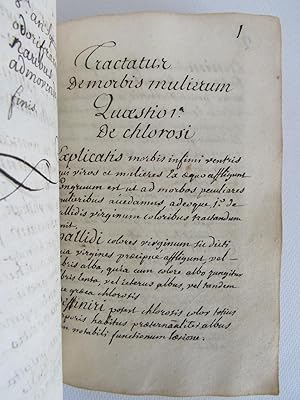 odorifera
naribus
admonea
finis.
1
Tractatus
De morbis mulierum
Quæstio 1a
de chlorosi
Explicatis morbis infimi ventris
qui viros et mulieres ex æquo affligunt
congruum est ut ad morbos peculiares
mulieribus accedamus, adeoque 1o de
pallidis virginum coloribus tractandum
nit.
pallidi colores virginum sic dicti
quia virgines præcipue affligunt, vel
febris alba, quia cum colore albo jungitur
febris lenta, vel icterus albus, vel tandem
græca chlorosis
Diffiniri potest chlorosis color totius
corporis habitus præternaturaliter albus
cum notabili functionum læsione.